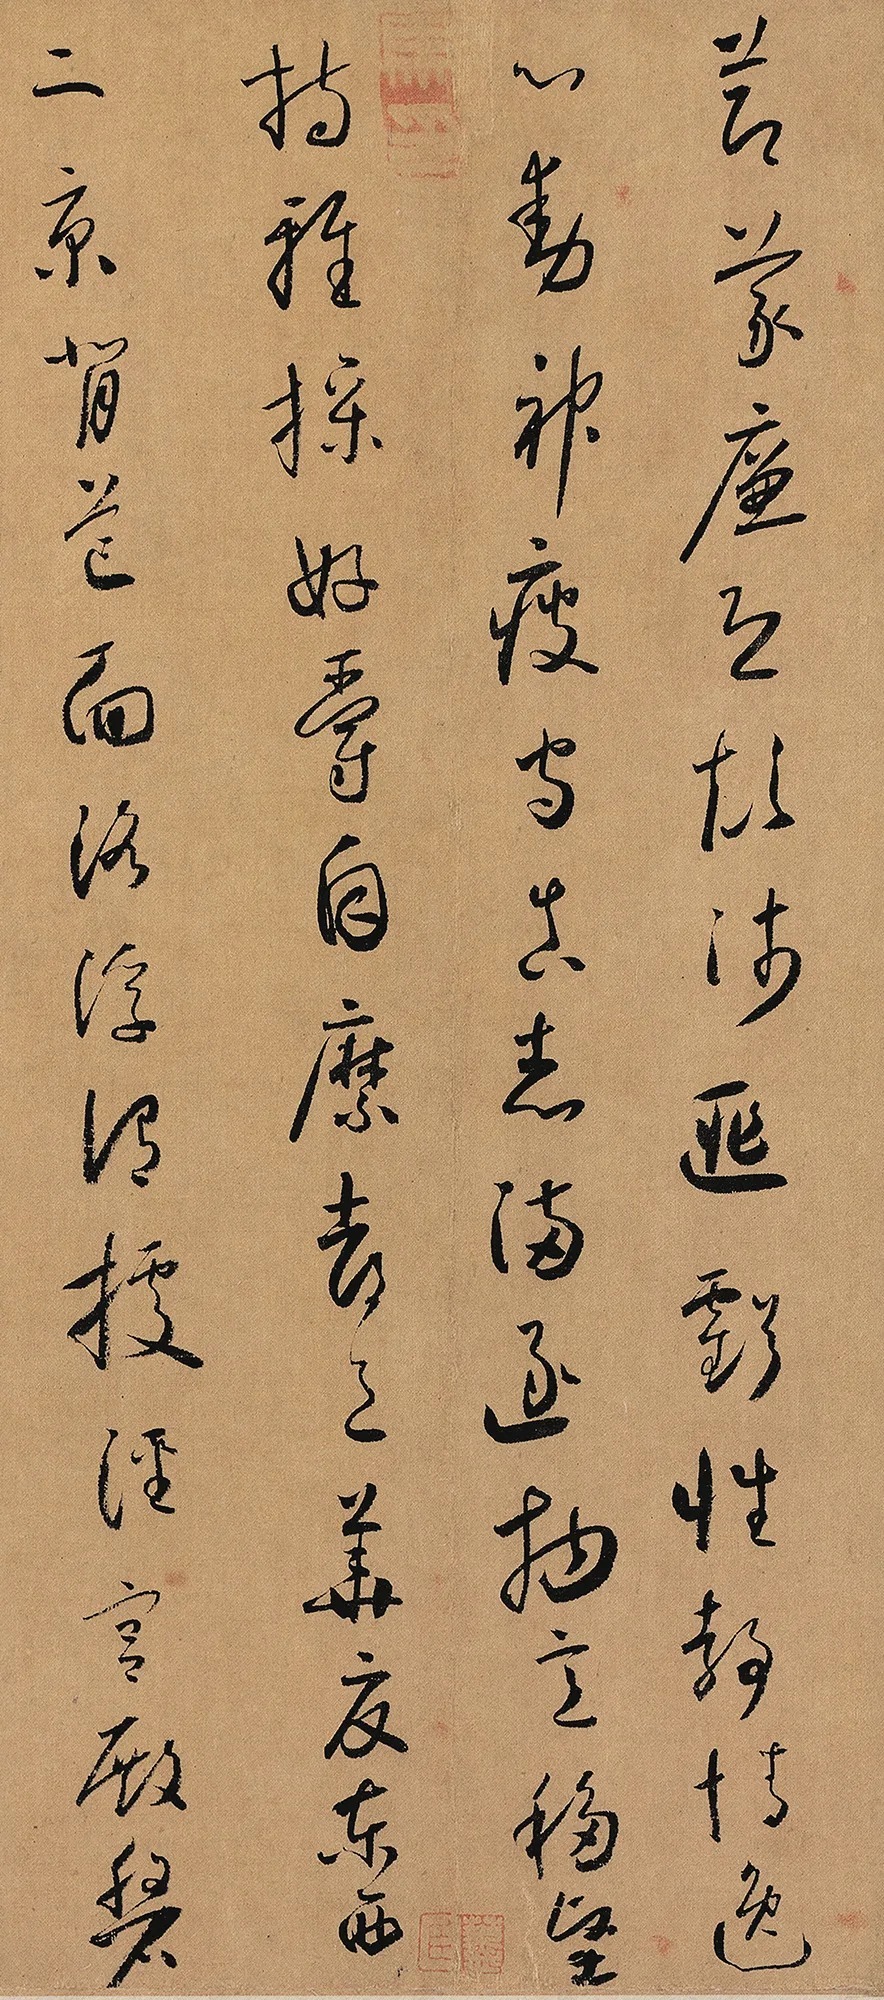 節義廉退顛沛匪虧性靜情逸
心動神疲守真志滿逐物意移堅
持雅操好爵自縻都邑華夏東西
二京背芒面洛浮渭據涇宮殿磐